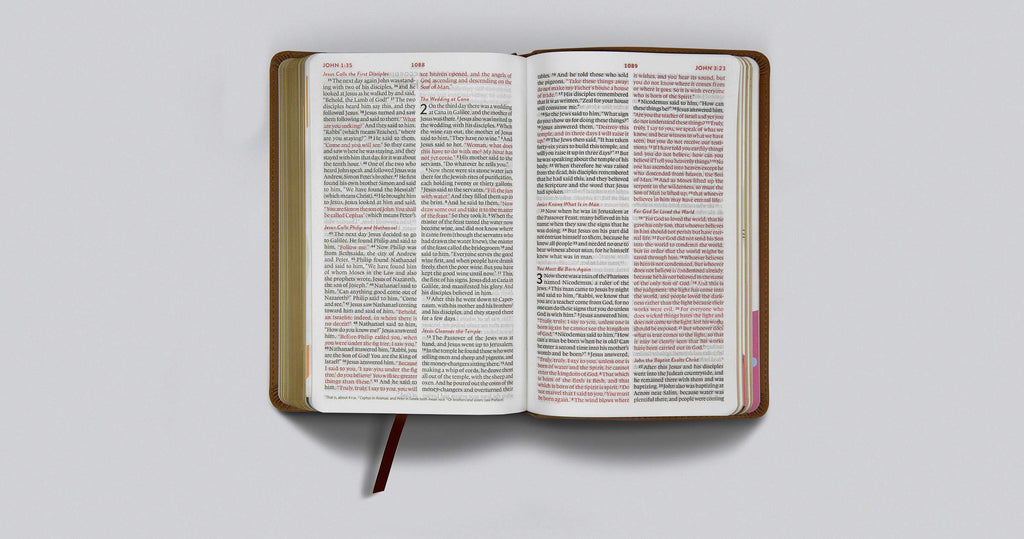 JOHN 1:35
1088
Jesus Calls the First Disciples
35 The next day again John was stand-
ing with two of his disciples, 36 and he
looked at Jesus as he walked by and said,
"Behold, the Lamb of God!" 37 The two
disciples heard him say this, and they
followed Jesus. 38 Jesus turned and saw
them following and said to them, "What
are you seeking?" And they said to him,
"Rabbi" (which means Teacher), "where
are you staying?" 39 He said to them,
"Come and you will see." So they came
and saw where he was staying, and they
stayed with him that day, for it was about
the tenth hour. 40 One of the two who
heard John speak and followed Jesus was
Andrew, Simon Peter's brother. 41 He first
found his own brother Simon and said
to him, "We have found the Messiah"
(which means Christ). 42 He brought him
to Jesus. Jesus looked at him and said,
"You are Simon the son of John. You shall
be called Cephas" (which means Peter).
Jesus Calls Philip and Nathanael
43 The next day Jesus decided to go
to Galilee. He found Philip and said to
him, "Follow me." 44 Now Philip was
from Bethsaida, the city of Andrew
and Peter. 45 Philip found Nathanael
and said to him, "We have found him
of whom Moses in the Law and also
the prophets wrote, Jesus of Nazareth,
the son of Joseph." 46 Nathanael said to
him, "Can anything good come out of
Nazareth?" Philip said to him, "Come
and see." 47 Jesus saw Nathanael coming
toward him and said of him, "Behold,
an Israelite indeed, in whom there is
no deceit!" 48 Nathanael said to him,
"How do you know me?" Jesus answered
him, "Before Philip called you, when
you were under the fig tree, I saw you."
49 Nathanael answered him, "Rabbi, you
are the Son of God! You are the King of
Israel!" 50 Jesus answered him, "Because
I said to you, 'I saw you under the fig
tree,' do you believe? You will see greater
things than these." 51 And he said to
him, "Truly, truly, I say to you, you will
see heaven opened, and the angels of
God ascending and descending on the
Son of Man."
The Wedding at Cana
2 On the third day there was a wedding
at Cana in Galilee, and the mother of
Jesus was there. 2 Jesus also was invited to
the wedding with his disciples. 3 When
the wine ran out, the mother of Jesus
said to him, "They have no wine." 4 And
Jesus said to her, "Woman, what does
this have to do with me? My hour has
not yet come." 5 His mother said to the
servants, "Do whatever he tells you."
6 Now there were six stone water jars
there for the Jewish rites of purification,
each holding twenty or thirty gallons.
7 Jesus said to the servants, "Fill the jars
with water." And they filled them up to
the brim. 8 And he said to them, "Now
draw some out and take it to the master
of the feast." So they took it. 9 When the
master of the feast tasted the water now
become wine, and did not know where
it came from (though the servants who
had drawn the water knew), the master
of the feast called the bridegroom 10 and
said to him, "Everyone serves the good
wine first, and when people have drunk
freely, then the poor wine. But you have
kept the good wine until now." 11 This,
the first of his signs, Jesus did at Cana in
Galilee, and manifested his glory. And
his disciples believed in him.
12 After this he went down to Caper-
naum, with his mother and his brothers
and his disciples, and they stayed there
for a few days.
Jesus Cleanses the Temple
13 The Passover of the Jews was at
hand, and Jesus went up to Jerusalem.
14 In the temple he found those who were
selling oxen and sheep and pigeons, and
the money-changers sitting there. 15 And
making a whip of cords, he drove them
all out of the temple, with the sheep and
oxen. And he poured out the coins of the
money-changers and overturned their
1089
JOHN 3:23
tables. 16 And he told those who sold
the pigeons, "Take these things away;
do not make my Father's house a house
of trade." 17 His disciples remembered
that it was written, "Zeal for your house
will consume me."
18 So the Jews said to him, "What sign
do you show us for doing these things?"
19 Jesus answered them, "Destroy this
temple, and in three days I will raise it
up." 20 The Jews then said, "It has taken
forty-six years to build this temple, and
will you raise it up in three days?" 21 But
he was speaking about the temple of his
body. 22 When therefore he was raised
from the dead, his disciples remembered
that he had said this, and they believed
the Scripture and the word that Jesus
had spoken.
Jesus Knows What Is in Man
23 Now when he was in Jerusalem at
the Passover Feast, many believed in his
name when they saw the signs that he
was doing. 24 But Jesus on his part did
not entrust himself to them, because he
knew all people 25 and needed no one to
bear witness about man, for he himself
knew what was in man.
You Must Be Born Again
3 Now there was a man of the Pharisees
named Nicodemus, a ruler of the
Jews. 2 This man came to Jesus by night
and said to him, "Rabbi, we know that
you are a teacher come from God, for no
one can do these signs that you do unless
God is with him." 3 Jesus answered him,
"Truly, truly, I say to you, unless one is
born again he cannot see the kingdom
of God." 4 Nicodemus said to him, "How
can a man be born when he is old? Can
he enter a second time into his mother's
womb and be born?" 5 Jesus answered,
"Truly, truly, I say to you, unless one is
born of water and the Spirit, he cannot
enter the kingdom of God. 6 That which
is born of the flesh is flesh, and that
which is born of the Spirit is spirit. 7 Do
not marvel that I said to you, 'You must
be born again.' 8 The wind blows where
it wishes, and you hear its sound, but
you do not know where it comes from
or where it goes. So it is with everyone
who is born of the Spirit."
9 Nicodemus said to him, "How can
these things be?" 10 Jesus answered him,
"Are you the teacher of Israel and yet you
do not understand these things? 11 Truly,
truly, I say to you, we speak of what we
know, and bear witness to what we have
seen, but you do not receive our testi-
mony. 12 If I have told you earthly things
and you do not believe, how can you
believe if I tell you heavenly things? 13 No
one has ascended into heaven except he
who descended from heaven, the Son
of Man. 14 And as Moses lifted up the
serpent in the wilderness, so must the
Son of Man be lifted up, 15 that whoever
believes in him may have eternal life.
For God So Loved the World
16 "For God so loved the world, that he
gave his only Son, that whoever believes
in him should not perish but have eter-
nal life. 17 For God did not send his Son
into the world to condemn the world,
but in order that the world might be
saved through him. 18 Whoever believes
in him is not condemned, but whoever
does not believe is condemned already,
because he has not believed in the name
of the only Son of God. 19 And this is
the judgment: the light has come into
the world, and people loved the dark-
ness rather than the light because their
works were evil. 20 For everyone who
does wicked things hates the light and
does not come to the light, lest his works
should be exposed. 21 But whoever does
what is true comes to the light, so that
it may be clearly seen that his works
have been carried out in God."
John the Baptist Exalts Christ
22 After this Jesus and his disciples
went into the Judean countryside, and
he remained there with them and was
baptizing. 23 John also was baptizing at
Aenon near Salim, because water was
plentiful there, and people were coming